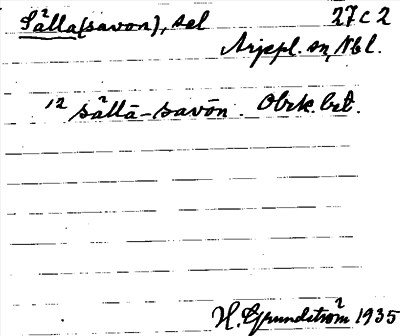 Sälla(savon), sel 27 c 2
Arjepl. sn, Nbl.
12 sällā-savōn. Obrk. bet.
H. Grundström 1935